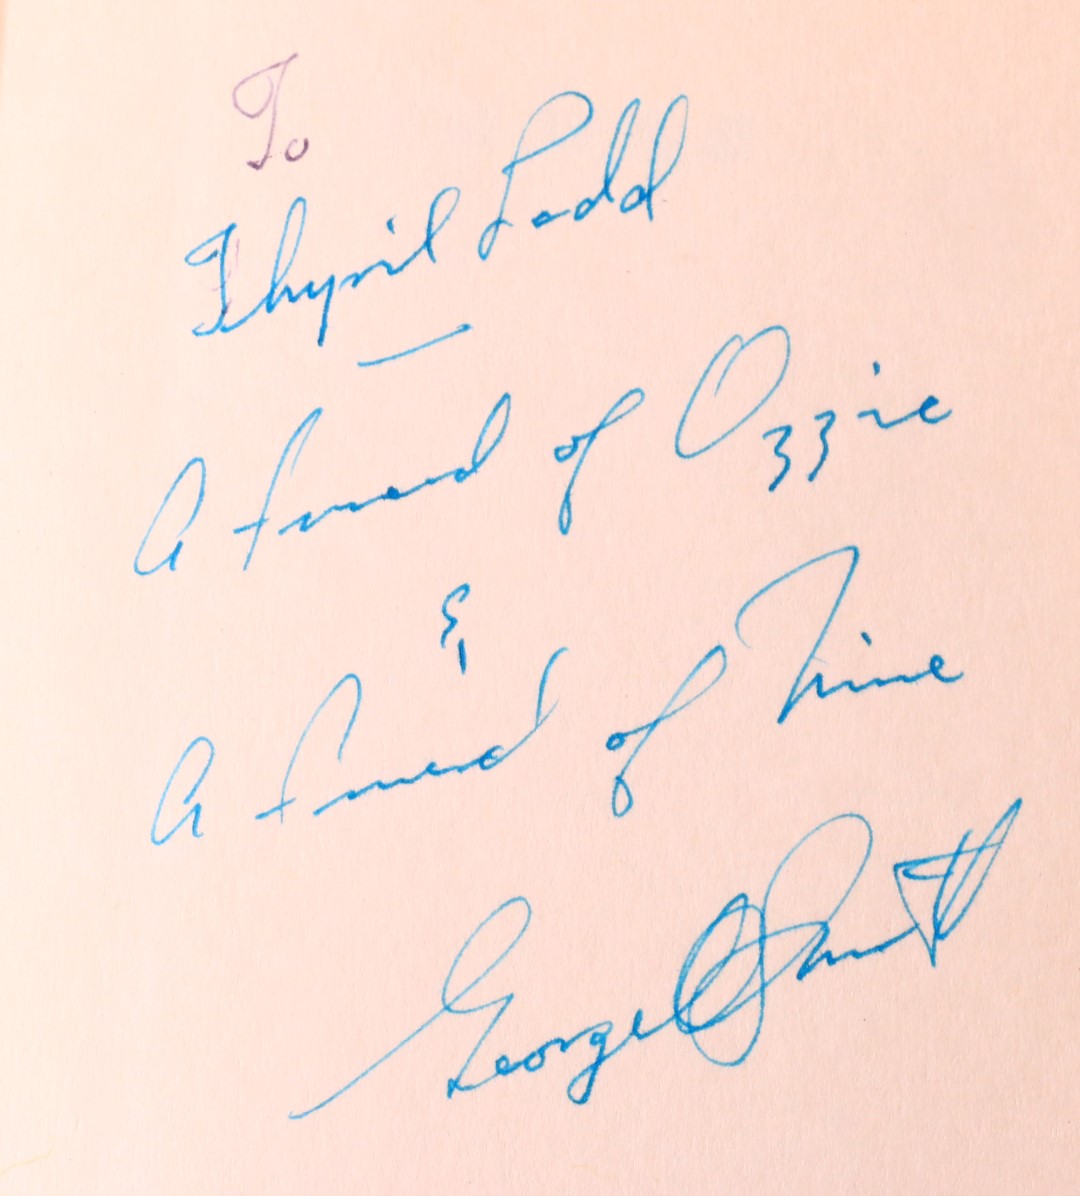 To
Thyril Ladd
—
A friend of Ozzie
&
A friend of Mine
George O. Smith